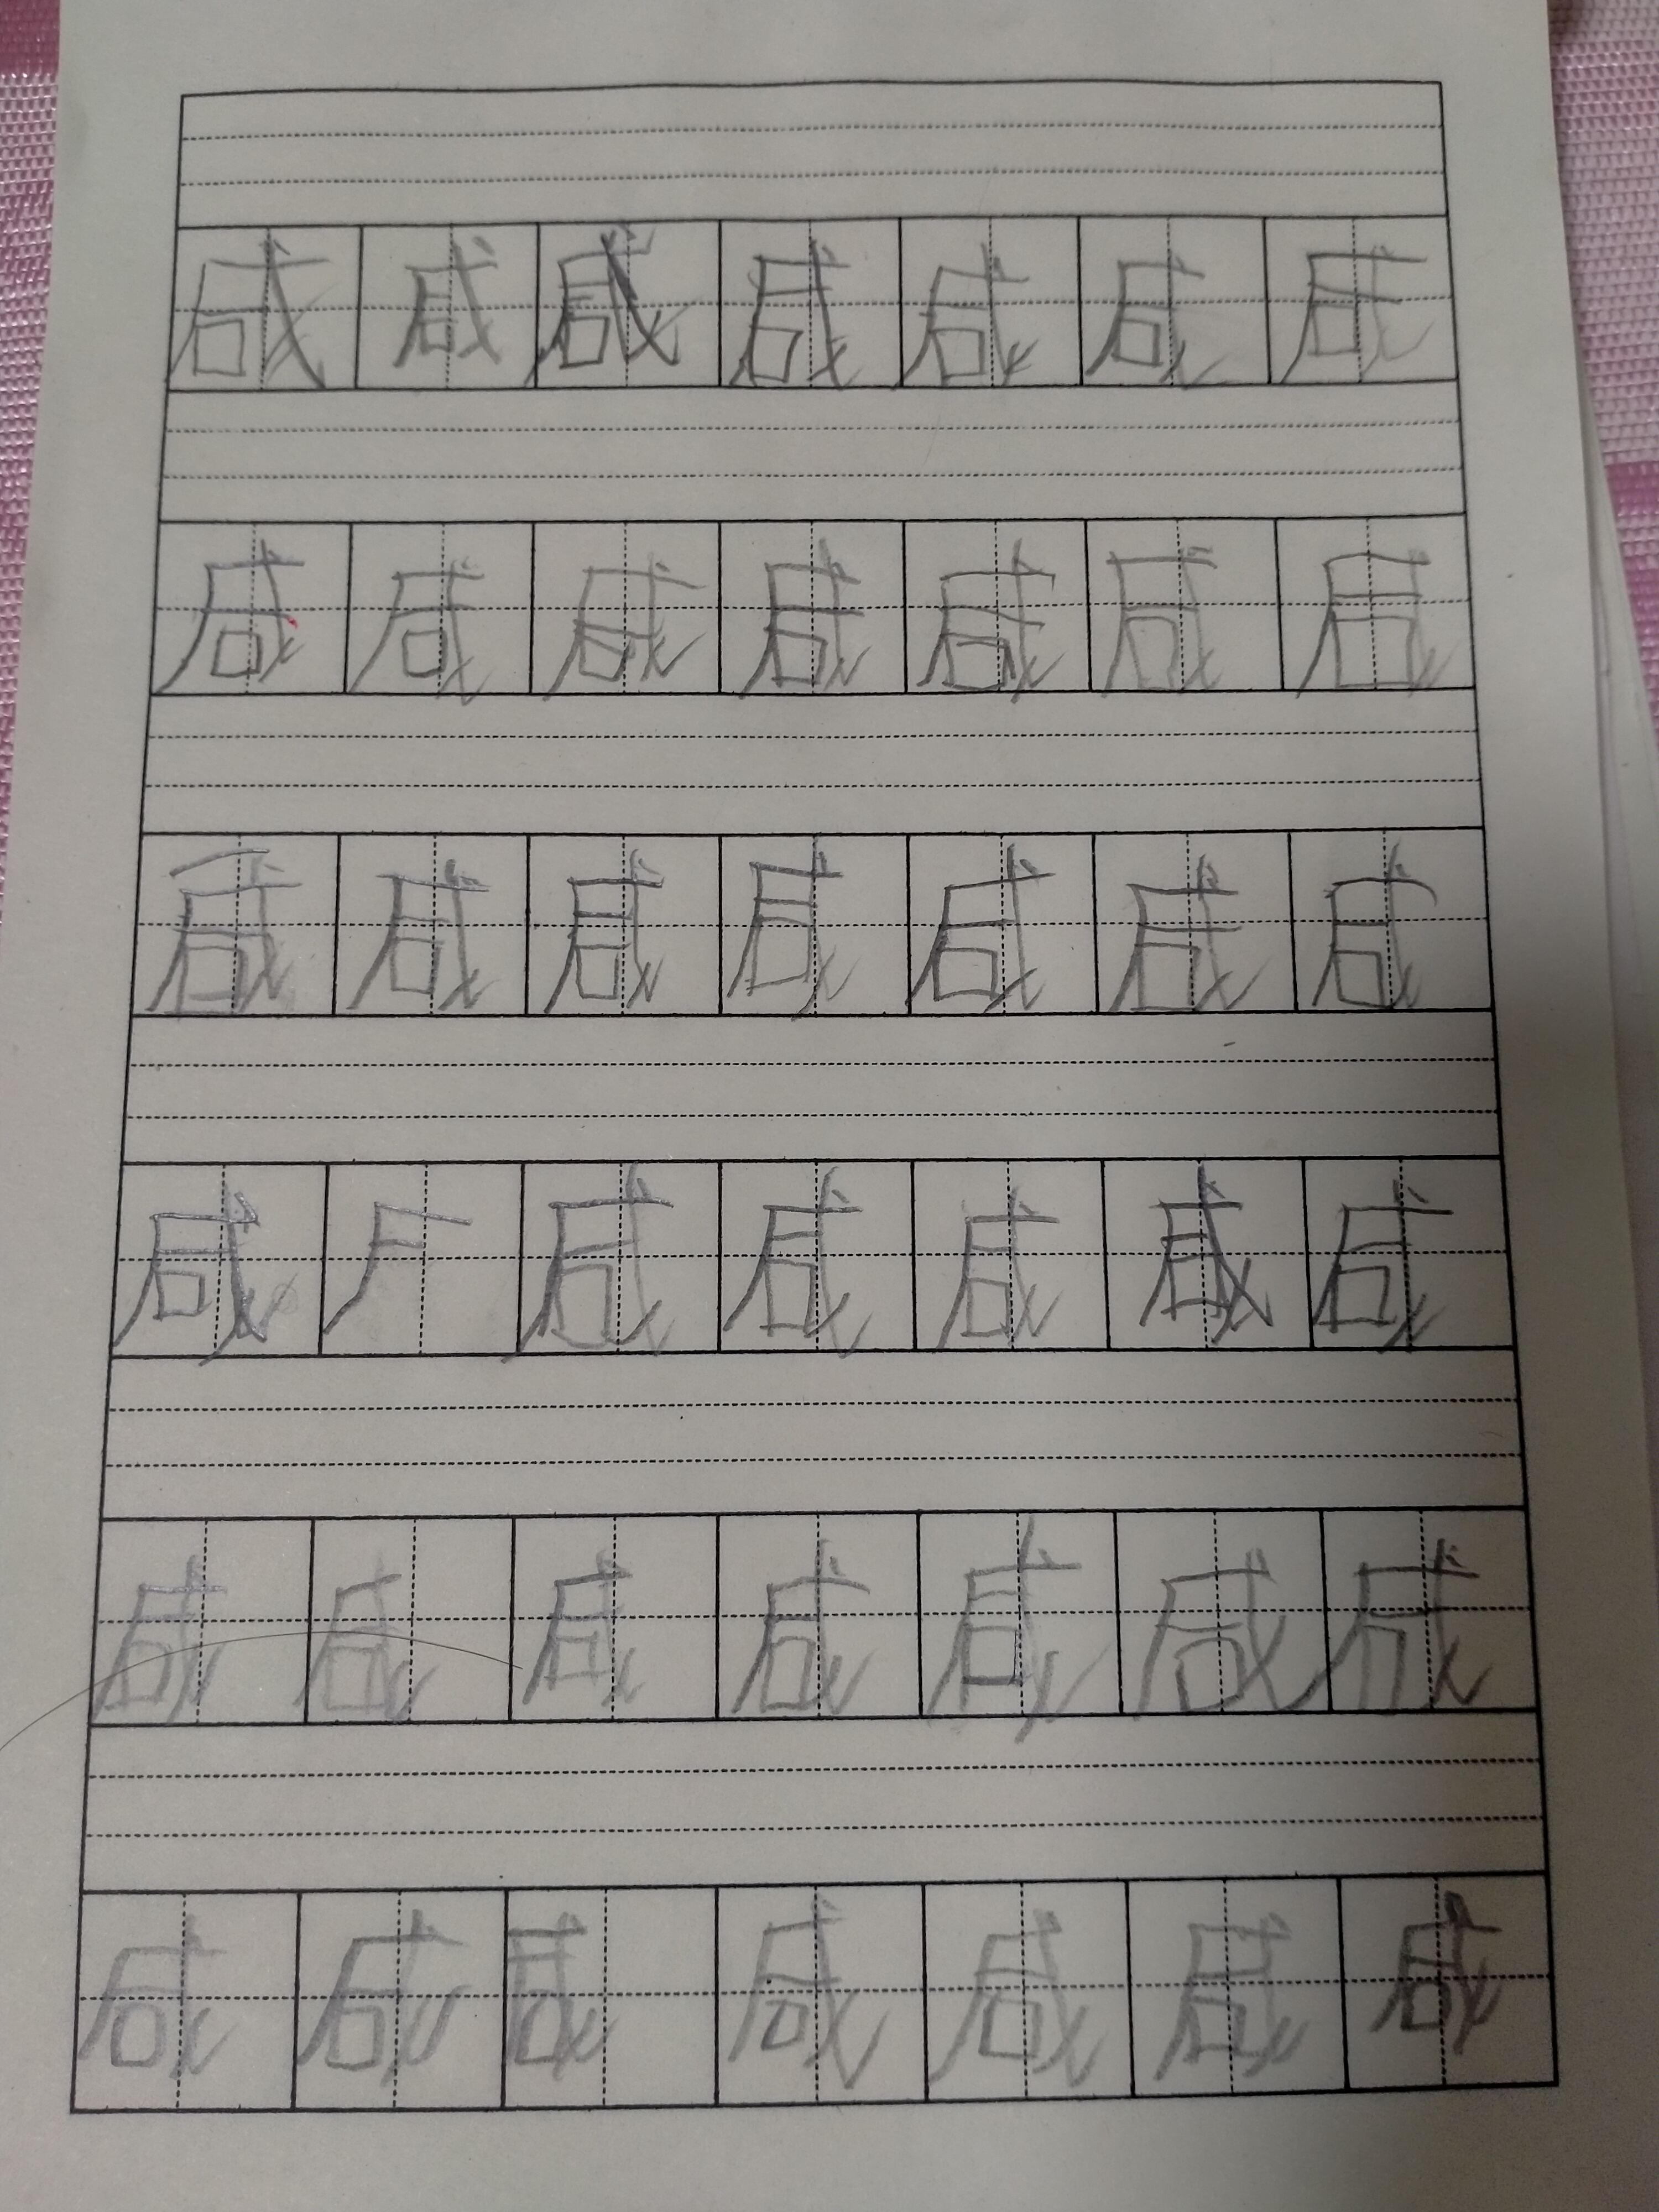 咸咸咸咸咸咸咸
咸咸咸咸咸咸咸
咸咸咸咸咸咸咸
咸咸咸咸咸咸
咸咸咸咸咸咸咸
咸咸咸咸咸咸咸